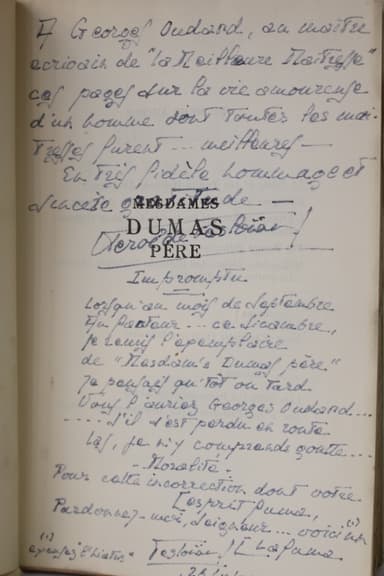 A Georges Oudard, au maître
écrivain de "la Meilleure Maîtresse"
ces pages sur la vie amoureuse
d'un homme dont toutes les maî-
tresses furent... meilleures —
En très fidèle hommage et
sincère gratitude —
MESDAMES
DUMAS
PÈRE
Impromptu
Lorsqu'au mois de Septembre
ce Sicambre,
je remis l'exemplaire
de "Mesdam's Dumas père"
Je pensais qu'tôt ou tard
Vous l'auriez Georges Oudard...
..... S'il s'est perdu en route
Las, je n'y comprends goutte....
- Moralité -
Pour cette incorrection dont votre
[esprit fuma,
Pardonnez-moi, Seigneur... voici un (1)
(1)